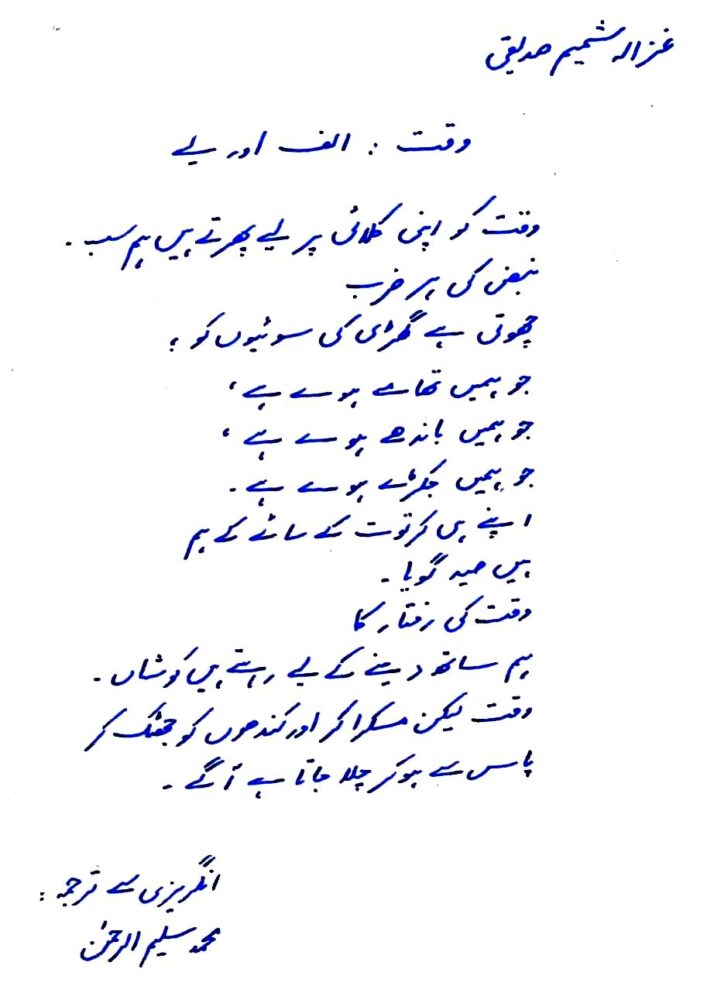 غزالہ شمیم صدیقی
وقت : الف اور یے
وقت کو اپنی کلائی پر لیے پھرتے ہیں ہم سب ۔
نبض کی ہر ضرب
چھوتی ہے گھڑی کی سوئیوں کو ؛
جو ہمیں تھامے ہوے ہے ،
جو ہمیں باندھے ہوے ہے ،
جو ہمیں جکڑے ہوے ہے ۔
اپنے ہی کرتوت کے سائے کے ہم
ہیں صید گویا ۔
وقت کی رفتار کا
ہم ساتھ دینے کے لیے رہتے ہیں کوشاں ۔
وقت لیکن مسکرا کر اور کندھوں کو جھٹک کر
پاس سے ہو کر چلا جاتا ہے آگے ۔
انگریزی سے ترجمہ :
محمد سلیم الرحمٰن